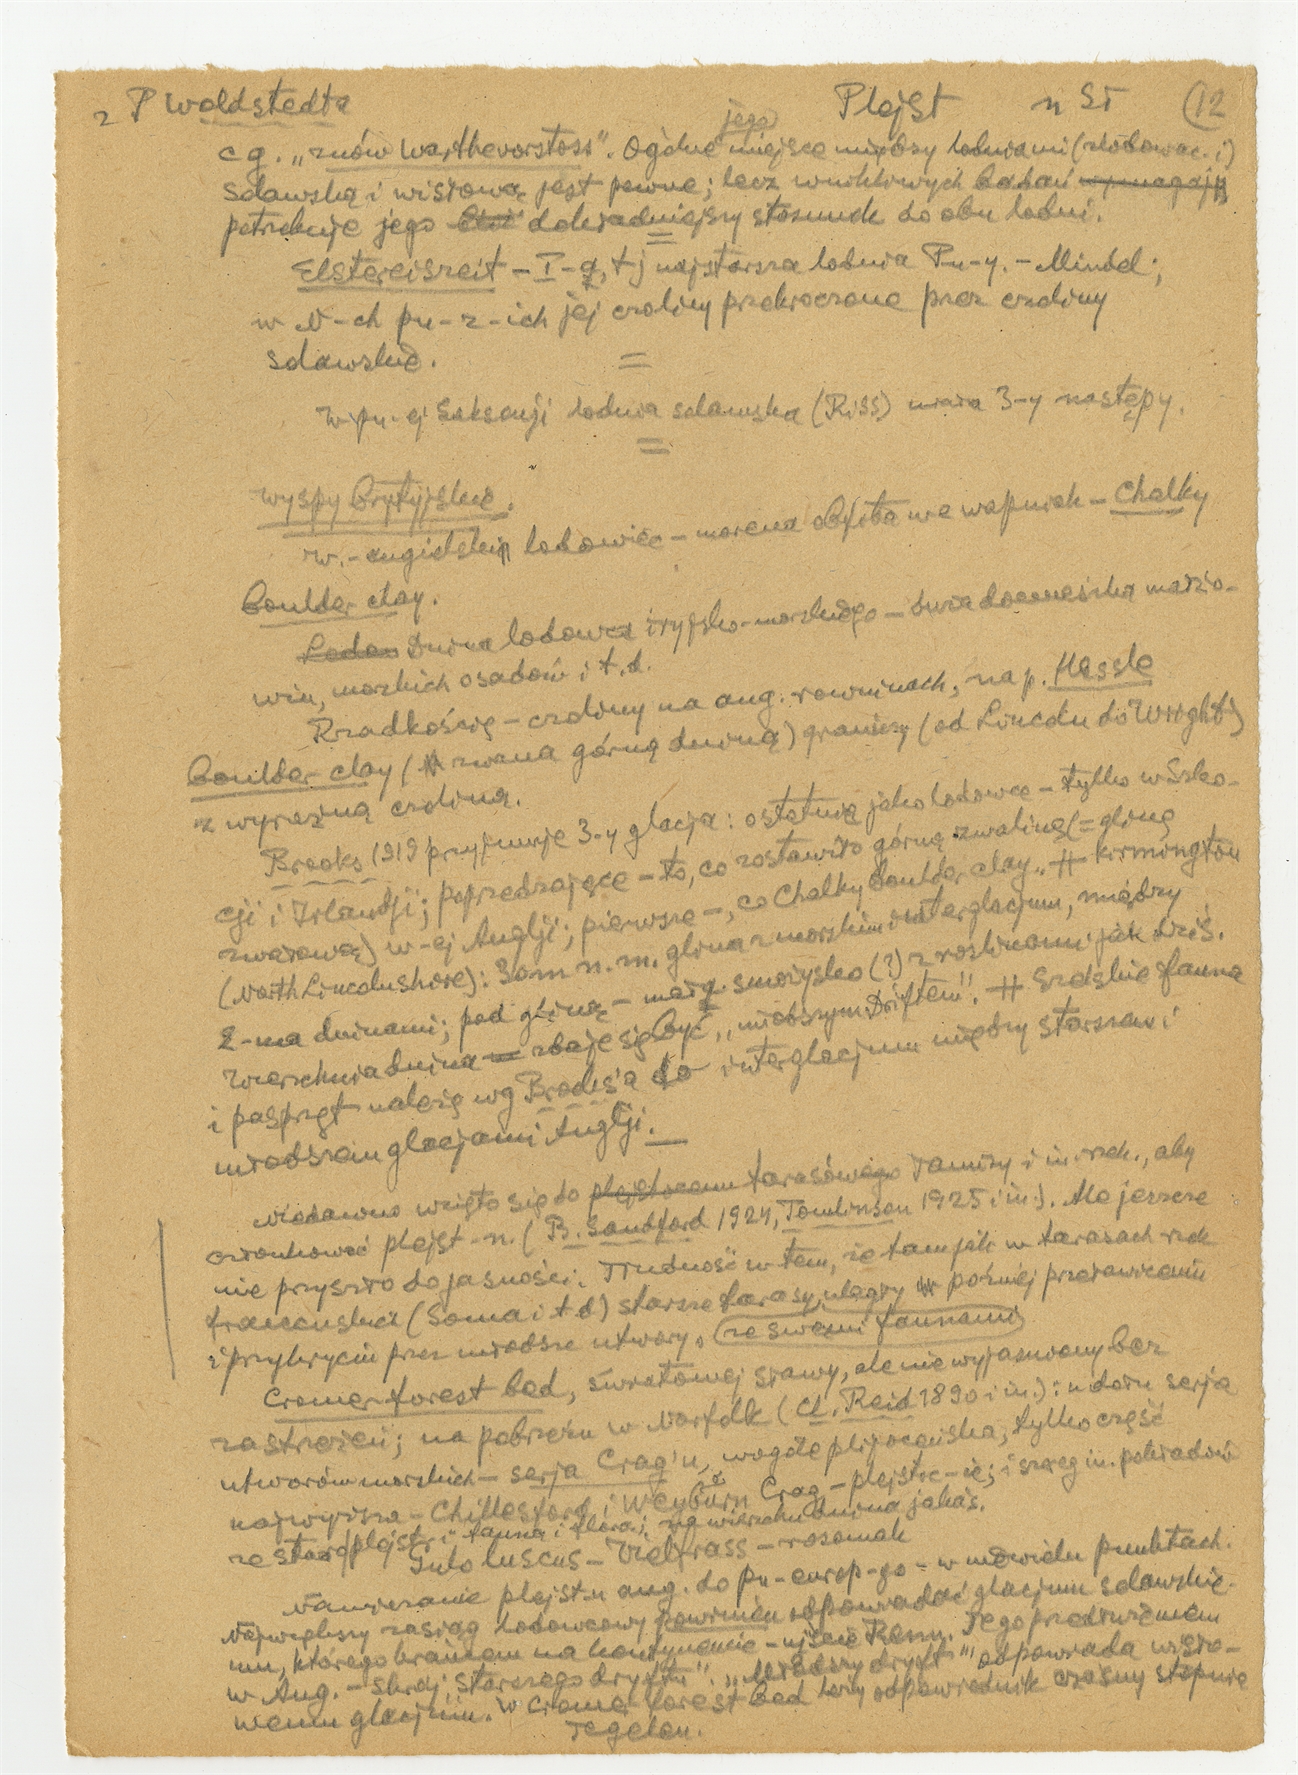 z P Woldstedta Plejst n St (12
jego
c g. „znów Warthevorstoss". Ogólne miejsce między lodniami (zlodowac. i)
solawską i wisłową jest pewne; lecz wnikliwych badań wymagają
potrzebuje jego dokładniejszy stosunek do obu lodni.
Elstereiszeit – I-a, t j najstarsza lodnia Pn-y. – Mindel;
w N-ch pu-z-ich jej czoliny przekroczone przez czoliny
solawskie.
W pu-ej Saksonji lodnia solawska (Riss) miała 3-y nastepy.
Wyspy brytyjskie.
w.-angielskim lodowiec – morena obfita we wapniak – Chalky
Boulder clay.
Dwina lodowca iryjsko-morskiego – bura domieszka
win, morskich osadów i t.d.
Rzadkością – czoliny na ang. rowninach, nap. Hessle
Boulder clay (zwana górną dwiną) graniczy (od Lincoln do Wright)
z wyraźną czoliną.
Brooks 1919 przyjmuje 3-y glacja: ostatnią jako lodowce – tylko w Szko-
cji i Irlandji; poprzedzające – to, co zostawiło górną zwalinę (= glinę
zwałową) w-ej Anglji; pierwsze –, co Chalky boulder clay. # Kirmington
(North Lincolnshore): 30m n. m. glina z morskim interglacjum, między
2-ma dwinami; pod gliną – torfowisko (?) z roslinami jak dziś.
Wierzchnia dwina zdaje się być „młodszym Driftem". # Szelskie fauna
i pasprzęt należą wg Brooks'a do interglacjum między starszem i
młodszem glacjami Anglji.
Niedawno wzięto się do plejstocenu tarasówego Tamizy i in. rzek., aby
członkować plejst-n. (B. Sandford 1924, Tomlinson 1925 i in.). Ale jeszcze
nie przyszło do jasności. Trudność w tem, że tam jak w tarasach rzek
francuskich (Soma i t d) starsze tarasy uległy później przeławiceniu
i przykryciu przez młodsze utwory, ze swemi faunami
Cromer forest bed, światowej sławy, ale nie wyjasniony bez
zastrzeżeń; na pobrzeżu w Norfolk (Cl. Reid 1890 i in.): u dołu serja
utworów morskich – serja Crag'u, wogóle pliocenska, tylko część
najwyższa – Chillesford i Weyburn Crag – plejstc-ie; i szereg in. pokładów
ze staroplejstc. fauną i florą; na wierzchu dwina jakaś.
Gulo luscus – Vielfrass – rosomak
Nawiązanie plejst-u ang. do pn-europ-go – w niewielu punktach.
Największy zasiąg lodowcowy powinien odpowiadać glacjum solawskie-
mu, którego krańcem na kontynencie – ujście Renu. Jego przedłużeniem
w Ang. – skraj „starszego dryftu". „Młodszy dryft" odpowiada wisło-
wemu glacjum. W Cromer forest bed leży odpowiednik czasowy stopnie
Tegelen.